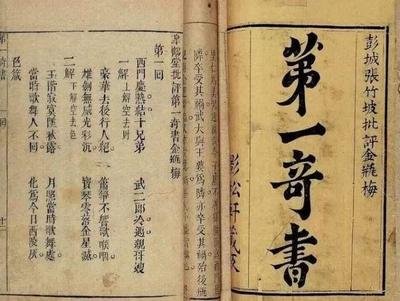 彭城張竹坡批評金瓶梅
第一奇書
影松軒藏
皋鶴堂批評第一奇書金瓶梅
第一回
西門慶熱結十兄弟 武二郎冷遇親哥嫂
一解 上解空去財
豪華去後行人絕 簫箏不響歌喉咽
雄劍無威光彩沉 寶琴零落金星滅
二解 下解空去色
玉階寂寞墜秋露 月照當時歌舞處
當時歌舞人不回 化為今日西陵灰
色箴